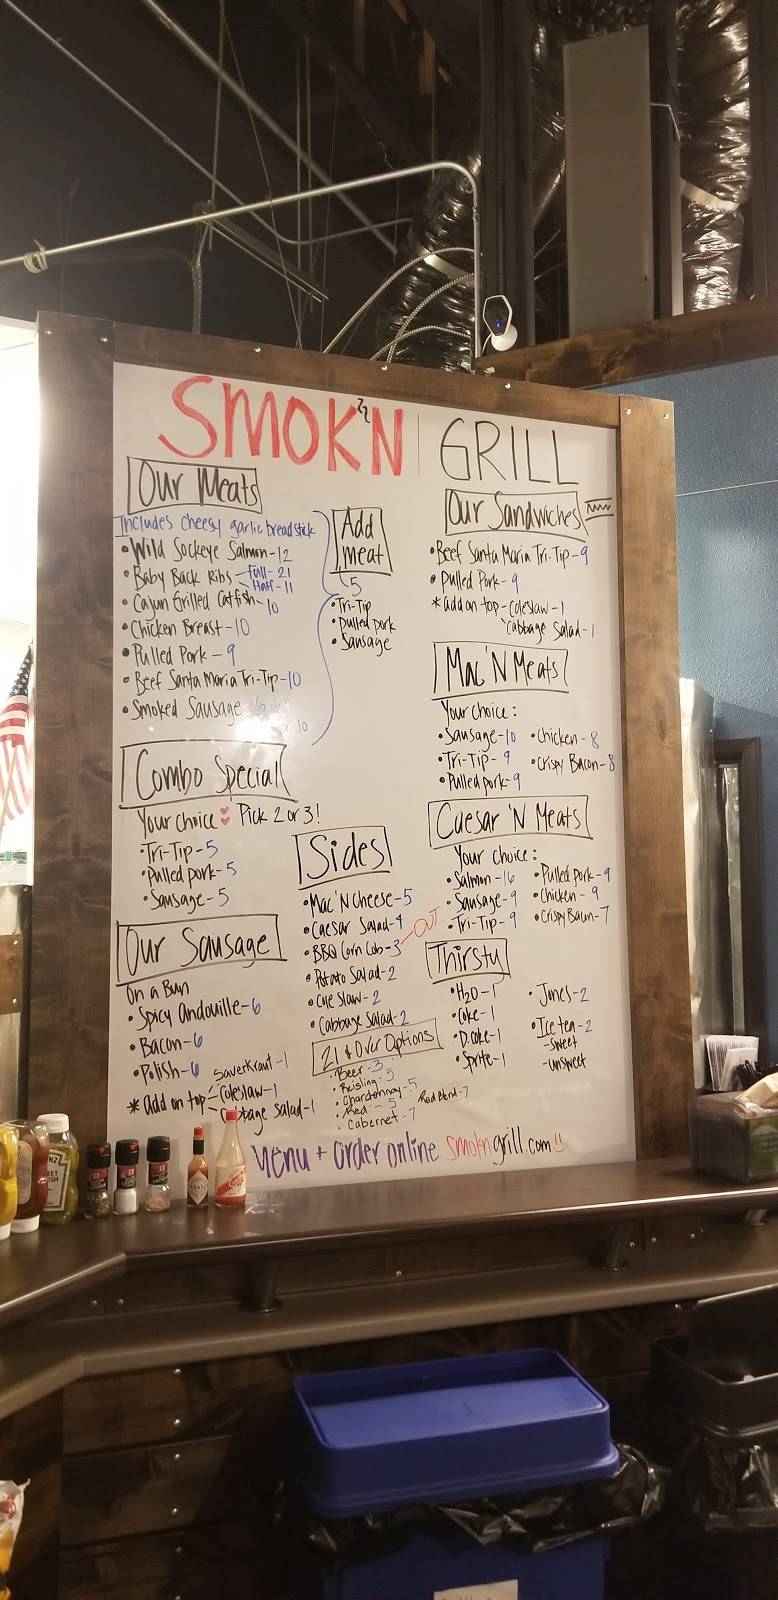 SMOK'N GRILL
Our Meats
Includes cheesy garlic breadstick
• Wild Sockeye Salmon - 12
• Baby Back Ribs - Full - 21
Half - 11
• Cajun Grilled Catfish - 10
• Chicken Breast - 10
• Pulled Pork - 9
• Beef Santa Maria Tri-Tip - 10
• Smoked Sausage
10
Add meat
5
• Tri-Tip
• Pulled pork
• Sausage
Combo Special
Your choice Pick 2 or 3!
• Tri-Tip - 5
• Pulled pork - 5
• Sausage - 5
Our Sausage
On a Bun
• Spicy Andouille - 6
• Bacon - 6
• Polish - 6
* Add on top - Saverkraut - 1
Coleslaw - 1
Salad - 1
Sides
• Mac'N Cheese - 5
• Caesar Salad - 4
• BBQ Corn Cob - 3 - OUT
• Potato Salad - 2
• Cole Slaw - 2
• Cabbage Salad - 2
21 & Over Options
• Beer - 3
• Reisling - 5
• Chardonnay - 5
• Red - 5 Red Blend - 7
• Cabernet - 7
Our Sandwiches
• Beef Santa Maria Tri-Tip - 9
• Pulled Pork - 9
* add on top - Coleslaw - 1
Cabbage Salad - 1
Mac'N Meats
Your choice:
• Sausage - 10 • Chicken - 8
• Tri-Tip - 9 • Crispy Bacon - 8
• Pulled pork - 9
Caesar 'N Meats
Your choice:
• Salmon - 16 • Pulled pork - 9
• Sausage - 9 • Chicken - 9
• Tri-Tip - 9 • Crispy Bacon - 7
Thirsty
• H2O - 1 • Jones - 2
• Coke - 1 • Ice tea - 2
• D. Coke - 1 - sweet
• Sprite - 1 - unsweet
Menu + order online smokngrill.com